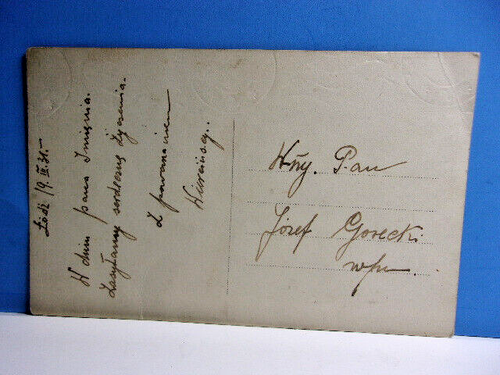 Łódź 19. III. 31.
W dniu pana Imienia.
Zasyłamy serdeczne życzenia.
Z poważaniem
Wny. Pan
Józef Gorecki